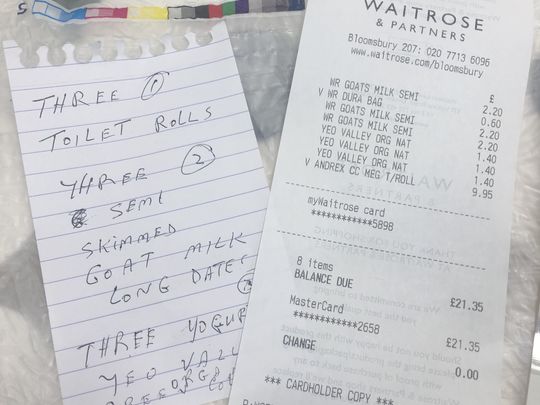 THREE 1
TOILET ROLLS
THREE 2
SEMI
SKIMMED
GOAT MILK
LONG DATES
THREE
YEO
WAITROSE
& PARTNERS
Bloomsbury 207: 020 7713 6096
www.waitrose.com/bloomsbury
£
WR GOATS MILK SEMI 2.20
V WR DURA BAG 0.60
WR GOATS MILK SEMI 2.20
WR GOATS MILK SEMI 2.20
YEO VALLEY ORG NAT 1.40
YEO VALLEY ORG NAT 1.40
YEO VALLEY ORG NAT 1.40
V ANDREX CC MEG T/ROLL 9.95
myWaitrose card
************5898
8 items
BALANCE DUE £21.35
MasterCard £21.35
************2658
CHANGE 0.00
*** CARDHOLDER COPY ***